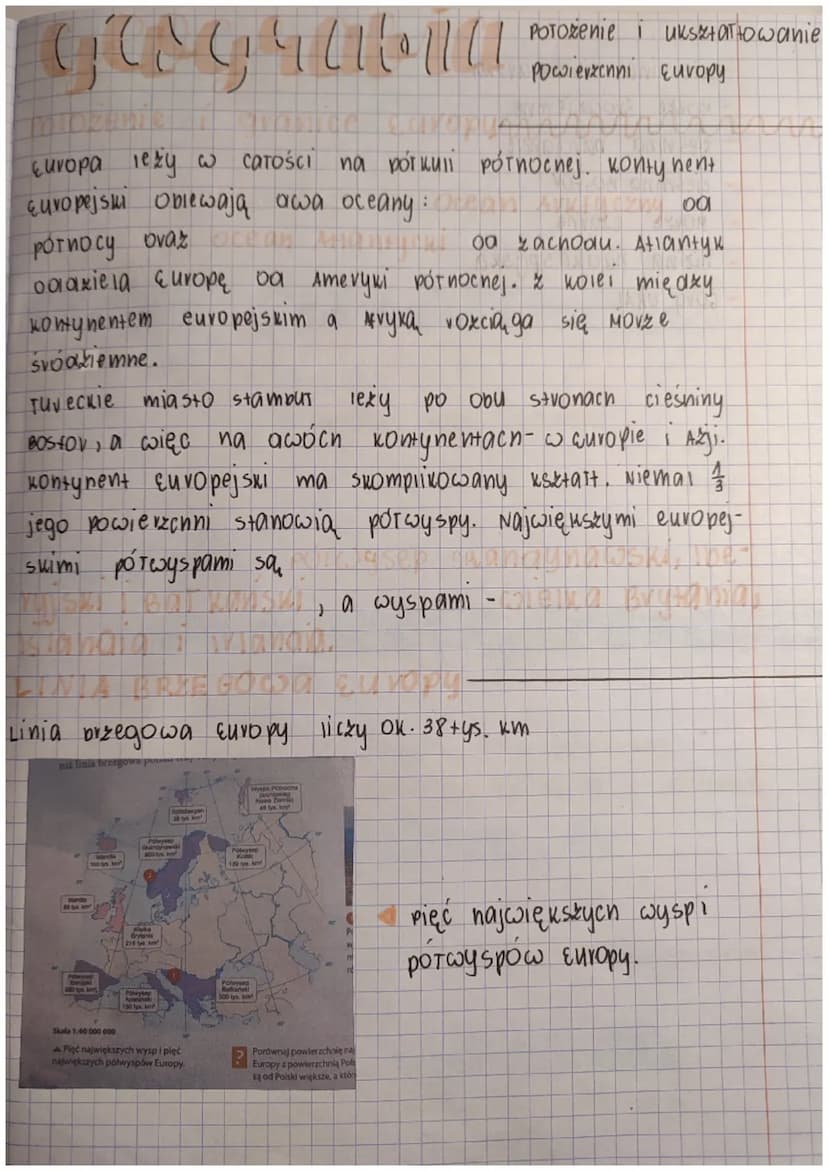 Geografia
Położenie i ukształtowanie
powierzchni Europy
Położenie i granice Europy
Europa leży w całości na półkuli północnej. Kontynent
Europejski oblewają dwa oceany: Ocean Arktyczny od
północy oraz Ocean Atlantycki od zachodu. Atlantyk
oddziela Europę od Ameryki północnej. Z kolei między
kontynentem europejskim a Afryką rozciąga się Morze
śródziemne.
Tureckie miasto stambuł leży po obu stronach cieśniny
Bosfor, a więc na dwóch kontynentach- w Europie i Azji.
Kontynent Europejski ma skomplikowany kształt. Niemal 1/3
jego powierzchni stanowią półwyspy. Największymi europej-
skimi półwyspami są półwysep skandynawski, Ibe-
ryjski i Bałkański, a wyspami - wielka Brytania,
Islandia i Irlandia.
LINIA BRZEGOWA EUROPY
Linia brzegowa Europy liczy ok. 38 tys. km
Spitsbergen
38 tys. km²
Wyspa Północna
Nowa Ziemia
Islandia
Półwysep
Skandynawski
800 tys. km²
Półwysep
Kolski
Irlandia
Wielka
Brytania
Półwysep
Iberyjski
Półwysep
Apeniński
Półwysep
Bałkański
Skala 1:60 000 000
Pięć największych wysp i pięć
największych półwyspów Europy.
? Porównaj powierzchnię
Europy z powierzchnią
są od Polski większe, a
Pięć największych wysp i
półwyspów Europy.